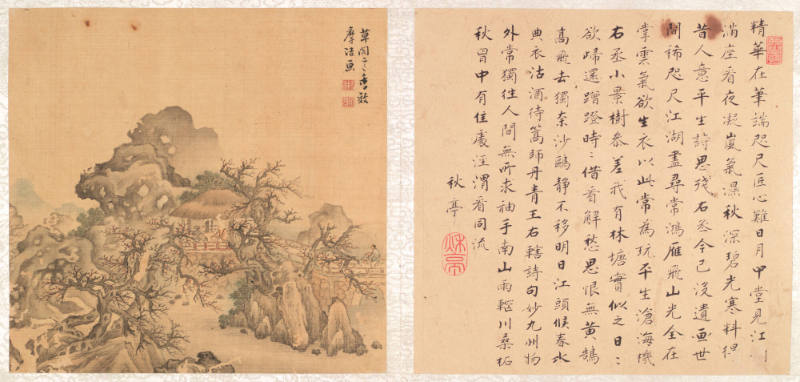 草閣
摩詰畫
精華在筆端咫尺匠心難日月中堂見江川
滿座看夜凝嵐氣濕秋深碧光寒料得
昔人意平生詩思殘右丞今已沒遺畫世
間稀咫尺江湖盡尋常鴻雁飛山光全在
掌雲氣欲生衣以此常為玩平生滄海機
右丞小景樹參差我有林塘實似之日〻
欲歸還蹭蹬時〻借看解愁思恨無黃鵠
高飛去獨奈沙鷗靜不移明日江頭候春水
典衣沽酒待篙師丹青王右轄詩句妙九州物
外常獨往人間無所求袖手南山雨輞川桑柘
秋胷中有佳處涇渭看同流
秋亭
秋亭